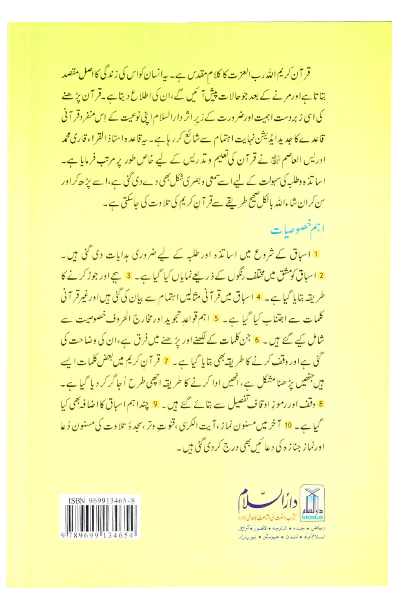 قرآن کریم اللہ رب العزت کا کلام مقدس ہے۔ یہ انسان کو اس کی زندگی کا اصل مقصد
بتاتا ہے اور مرنے کے بعد جو حالات پیش آئیں گے، ان کی اطلاع دیتا ہے۔ قرآن پڑھنے
کی اسی زبردست اہمیت اور ضرورت کے زیر اثر دارالسلام اپنی نوعیت کے اس منفرد قرآنی
قاعدے کا جدید ایڈیشن نہایت اہتمام سے شائع کر رہا ہے۔ یہ قاعدہ استاذ القراء قاری محمد
ادریس العاصم نے قرآن کی تعلیم و تدریس کے لیے خاص طور پر مرتب فرمایا ہے۔
اساتذہ و طلبہ کی سہولت کے لیے اسے سمعی و بصری شکل بھی دے دی گئی ہے، اسے پڑھ کر اور
سن کر ان شاء اللہ بالکل صحیح طریقے سے قرآن کریم کی تلاوت کی جا سکتی ہے۔
اہم خصوصیات
1 اسباق کے شروع میں اساتذہ اور طلبہ کے لیے ضروری ہدایات دی گئی ہیں۔
2 اسباق کو مشق میں مختلف رنگوں کے ذریعے نمایاں کیا گیا ہے۔ 3 ہجے اور جوڑ کرنے کا
طریقہ بتایا گیا ہے۔ 4 اسباق میں قرآنی مثالیں اہتمام سے بیان کی گئی ہیں اور غیر قرآنی
کلمات سے اجتناب کیا گیا ہے۔ 5 اہم قواعد تجوید اور مخارج الحروف خصوصیت سے
شامل کیے گئے ہیں۔ 6 جن کلمات کے لکھنے اور پڑھنے میں فرق ہے، ان کی وضاحت کی
گئی ہے اور وقف کرنے کا طریقہ بھی بتایا گیا ہے۔ 7 قرآن کریم میں بعض کلمات ایسے
ہیں جنھیں پڑھنا مشکل ہے، انھیں ادا کرنے کا طریقہ اچھی طرح اُجاگر کر دیا گیا ہے۔
8 وقف اور رموز اوقاف تفصیل سے بتائے گئے ہیں۔ 9 چند اہم اسباق کا اضافہ بھی کیا
گیا ہے۔ 10 آخر میں مسنون نماز، آیت الکرسی، قنوت وتر، سجدۂ تلاوت کی مسنون دُعا
اور نماز جنازہ کی دعائیں بھی درج کر دی گئی ہیں۔
ISBN 969913465-8
9 789699 134654
دارالسلام
کتاب و سنت کی اشاعت کا عالمی ادارہ
ریاض • جدہ • شارجہ • لاہور • کراچی
اسلام آباد • لندن • ہیوسٹن • نیو یارک
دارالسلام
DARUSSALAM